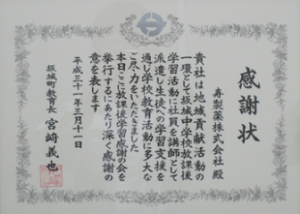 感謝状
寿製薬株式会社殿
貴社は地域貢献活動の
一環として坂城中学校放課後
学習活動に社員を講師として
派遣し生徒への学習支援を
通し学校教育活動に多大な
ご尽力をいただきました
本日ここに放課後学習感謝の会を
挙行するにあたり深く感謝の
意を表します
平成三十一年三月十一日
坂城町教育長 宮﨑義也